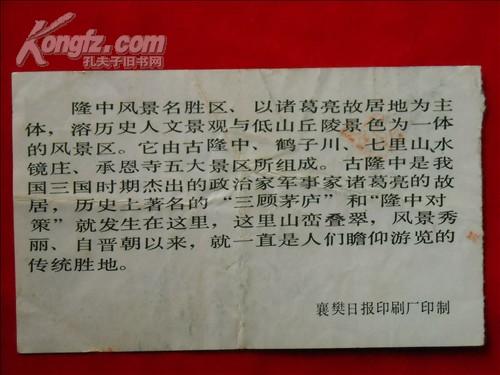 Kongfz.com
孔夫子旧书网
隆中风景名胜区、以诸葛亮故居地为主
体，溶历史人文景观与低山丘陵景色为一体
的风景区。它由古隆中、鹤子川、七里山水
镜庄、承恩寺五大景区所组成。古隆中是我
国三国时期杰出的政治家军事家诸葛亮的故
居，历史上著名的“三顾茅庐”和“隆中对
策”就发生在这里，这里山峦叠翠，风景秀
丽、自晋朝以来，就一直是人们瞻仰游览的
传统胜地。
襄樊日报印刷厂印制